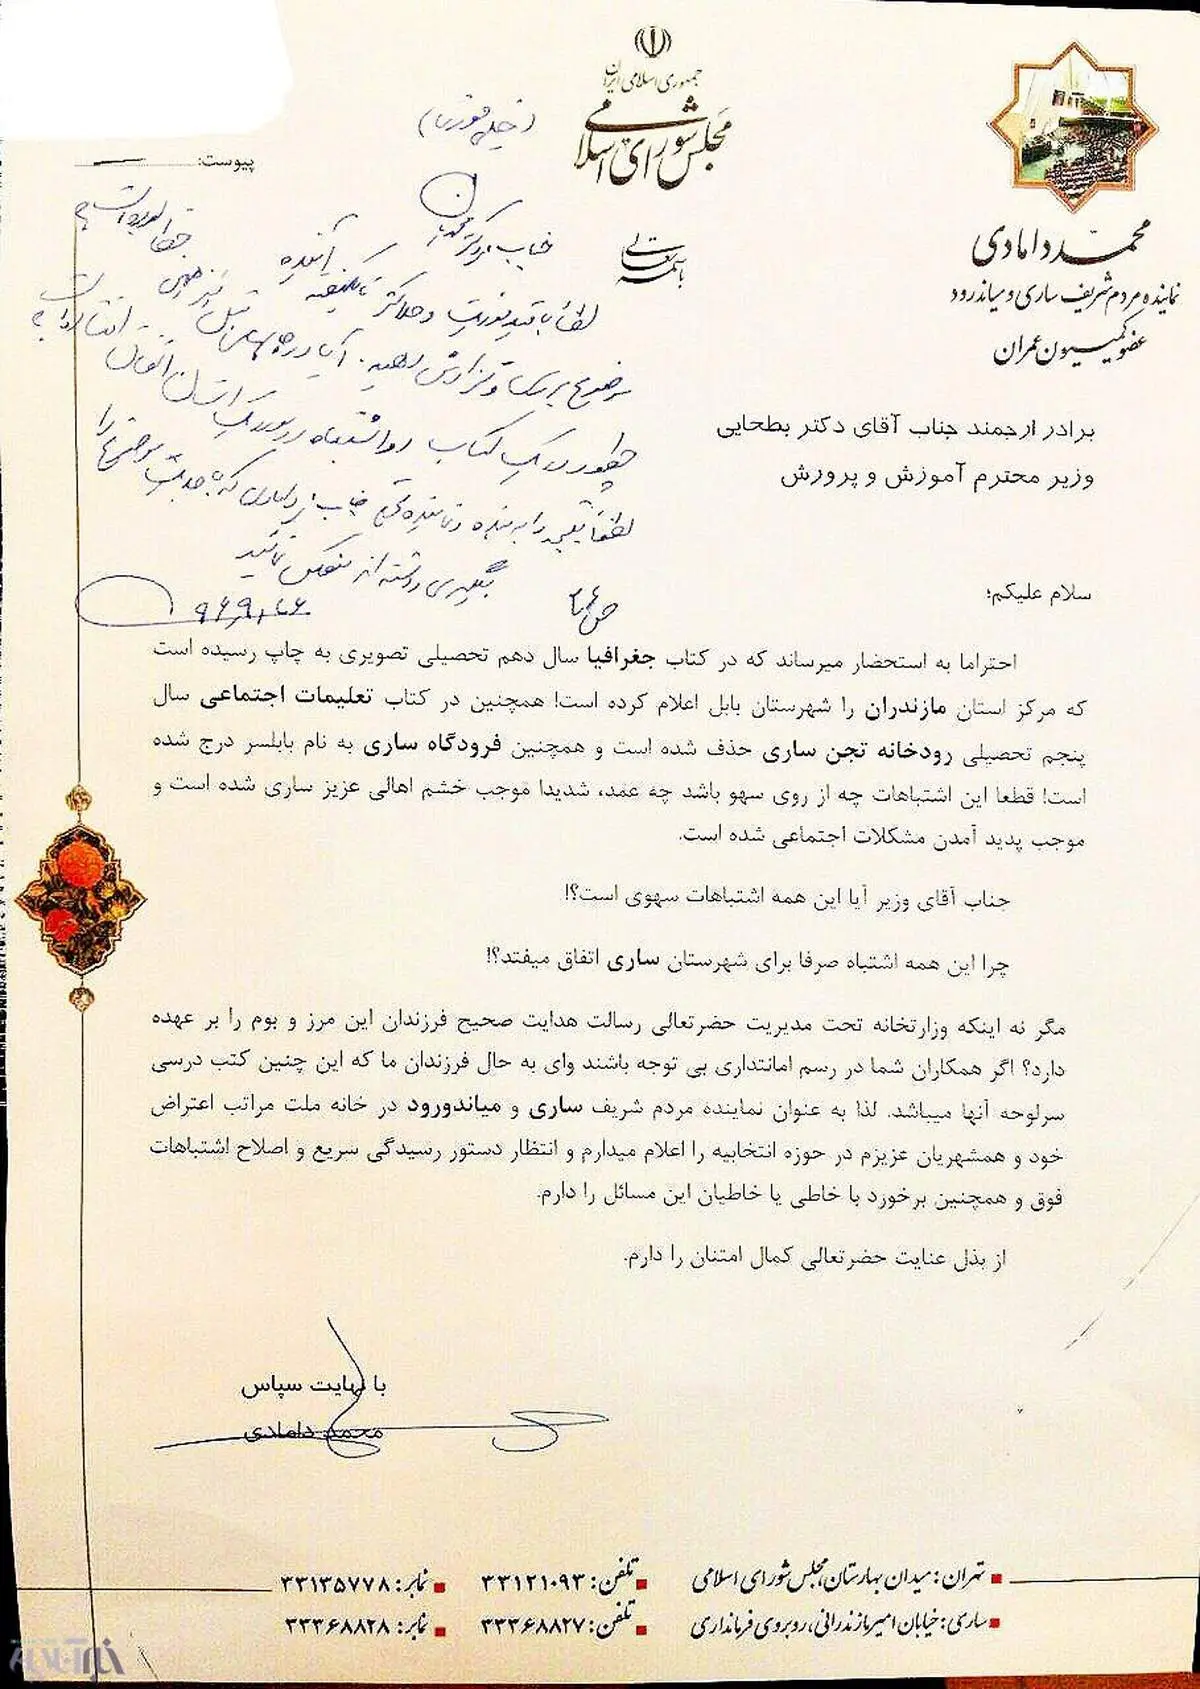 جمهوری اسلامی ایران
مجلس شورای اسلامی
باسمه تعالی
پیوست:
محمد دامادی
نماینده مردم شریف ساری و میاندرود
عضو کمیسیون عمران
(خیلی فوری)
جناب دکتر
لطفا با قید فوریت و حداکثر تا یکهفته آینده
موضوع بررسی و گزارش دهید. آیا در
چطور در یک کتاب دو اشتباه در مورد یک استان اتفاق
لطفا نتیجه را به بنده و نماینده محترم جناب دامادی که با جدیت موضوع را
پیگیری داشته اند منعکس نمائید
۹۶,۹,۲۶
برادر ارجمند جناب آقای دکتر بطحایی
وزیر محترم آموزش و پرورش
سلام علیکم؛
احتراما به استحضار میرساند که در کتاب جغرافیا سال دهم تحصیلی تصویری به چاپ رسیده است
که مرکز استان مازندران را شهرستان بابل اعلام کرده است! همچنین در کتاب تعلیمات اجتماعی سال
پنجم تحصیلی رودخانه تجن ساری حذف شده است و همچنین فرودگاه ساری به نام بابلسر درج شده
است! قطعا این اشتباهات چه از روی سهو باشد چه عمد، شدیدا موجب خشم اهالی عزیز ساری شده است و
موجب پدید آمدن مشکلات اجتماعی شده است.
جناب آقای وزیر آیا این همه اشتباهات سهوی است؟!
چرا این همه اشتباه صرفا برای شهرستان ساری اتفاق میفتد؟!
مگر نه اینکه وزارتخانه تحت مدیریت حضرتعالی رسالت هدایت صحیح فرزندان این مرز و بوم را بر عهده
دارد؟ اگر همکاران شما در رسم امانتداری بی توجه باشند وای به حال فرزندان ما که این چنین کتب درسی
سرلوحه آنها میباشد. لذا به عنوان نماینده مردم شریف ساری و میاندورود در خانه ملت مراتب اعتراض
خود و همشهریان عزیزم در حوزه انتخابیه را اعلام میدارم و انتظار دستور رسیدگی سریع و اصلاح اشتباهات
فوق و همچنین برخورد با خاطی یا خاطیان این مسائل را دارم.
از بذل عنایت حضرتعالی کمال امتنان را دارم.
با نهایت سپاس
محمد دامادی
تهران: میدان بهارستان، مجلس شورای اسلامی ■ تلفن: ۳۳۱۲۱۰۹۳ ■ نمابر: ۳۳۱۳۵۷۷۸
ساری: خیابان امیرمازندرانی، روبروی فرمانداری ■ تلفن: ۳۳۳۶۸۸۲۷ ■ نمابر: ۳۳۳۶۸۸۲۸
خبرآنلاین